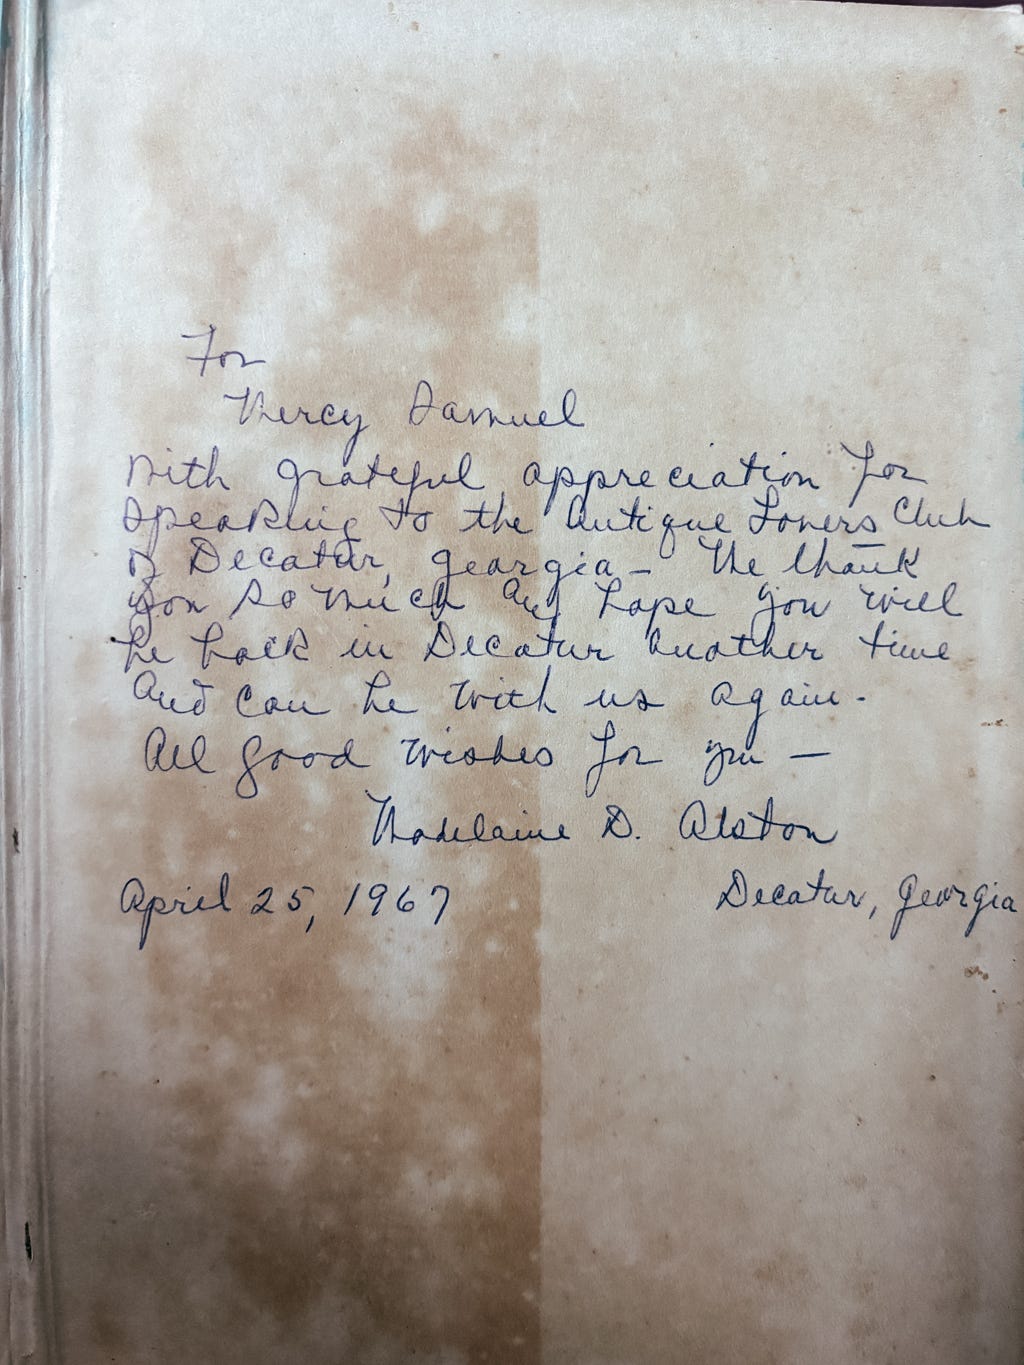 For
Mercy Samuel
With grateful appreciation for
speaking to the Antique Lovers Club
of Decatur, Georgia – We thank
you so much and hope you will
be back in Decatur another time
and can be with us again.
All good wishes for you –
Madelaine D. Alston
April 25, 1967 Decatur, Georgia